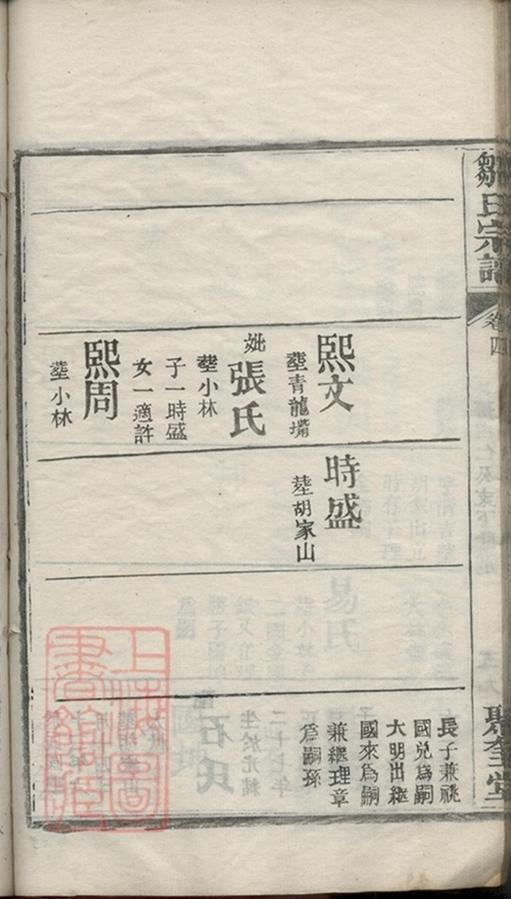 鄒氏宗譜
卷四
聚奎堂
熙文
塟青龍嘴
妣張氏
塟小林
子一時盛
女一適許
熙周
塟小林
時盛
塟胡家山
長子兼祧
國兒爲嗣
大明出繼
國來爲嗣
兼繼理章
爲嗣孫
石氏
上海圖
書館藏